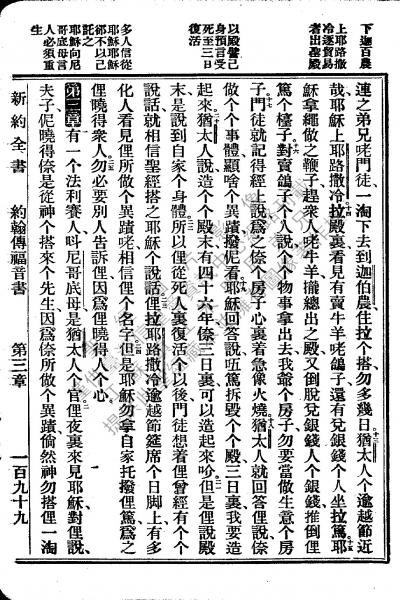 下迦百農
上耶路撒
冷逐貿易
者出聖殿
以殿譬己
身預言受
死至三日
復活
多人信從
耶穌耶穌
卻不以己
託之
耶穌向尼
哥底母言
人必須重
生
連之弟兄咾門徒一淘下去到迦伯農住拉个搭勿多幾日猶太人个逾越節近
哉耶穌上耶路撒冷拉殿裏看見有賣牛羊咾鴿子還有兌銀錢个人坐拉篤耶
穌拿繩做之鞭子趕衆人咾牛羊攏總出之殿又倒脫兌銀錢人个銀錢推倒俚
篤个檯子對賣鴿子个人說个个物事拿出去我爺个房子勿要當做生意个房
子門徒就記得經上說爲之倷个房子心裏着急像火燒猶太人就回答俚說倷
做个个事體顯啥个異蹟撥伲看耶穌回答說𠲎篤拆毀个个殿三日裏我要造
起來猶太人說造个个殿末有四十六年倷三日裏可以造起來但是俚說殿
末是說到自家个身體所以俚從死人裏復活个以後門徒想着俚曾經有个个
說話就相信聖經搭之耶穌个說話俚拉耶路撒冷逾越節筵席个日脚上有多
化人看見俚所做个異蹟咾相信俚个名字但是耶穌勿拿自家托撥俚篤爲之
俚曉得衆人勿必要別人告訴俚因爲俚曉得人个心
第三章 有一个法利賽人呌尼哥底母是猶太人个官俚夜裏來見耶穌對俚說
夫子伲曉得倷是從神个搭來个先生因爲倷所做个異蹟倘然神勿搭俚一淘
新約全書 約翰傳福音書 第三章 一百九十九